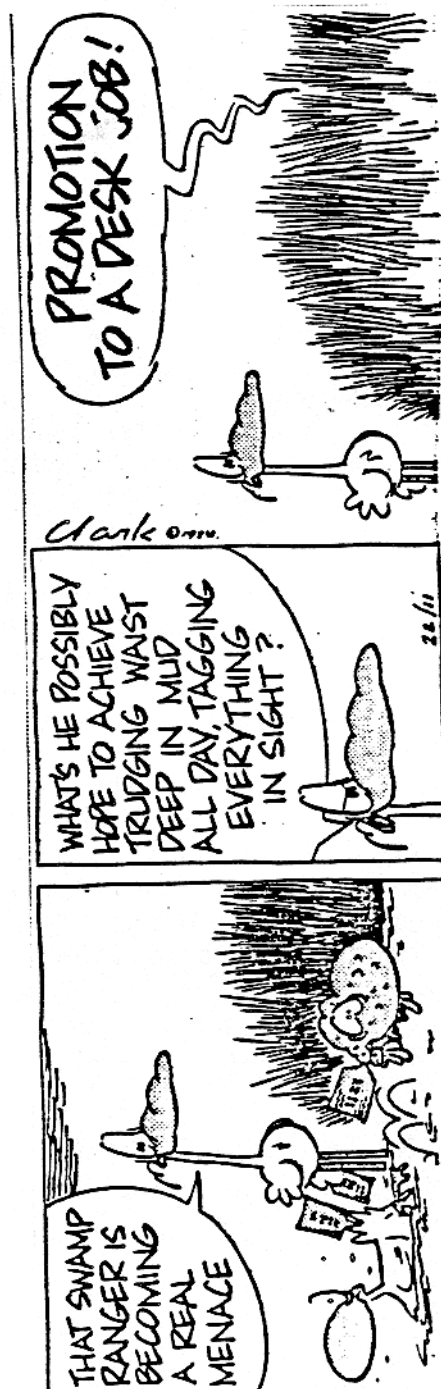 THAT SWAMP
RANGER IS
BECOMING
A REAL
MENACE
WHAT'S HE POSSIBLY
HOPE TO ACHIEVE
TRUDGING WAIST
DEEP IN MUD
ALL DAY, TAGGING
EVERYTHING
IN SIGHT?
22/11
Clark
PROMOTION
TO A DESK JOB!